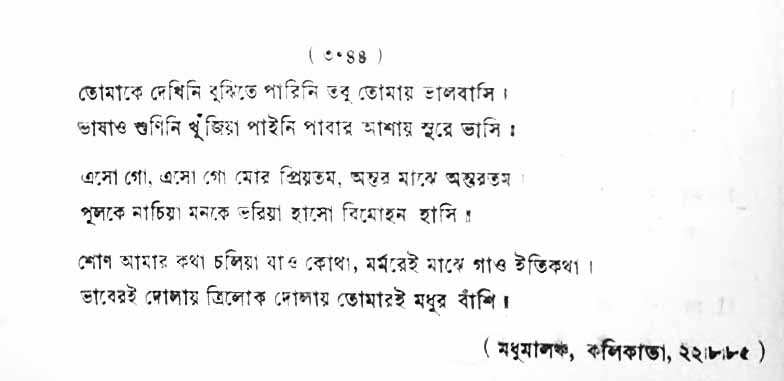 ( ৩০৪৪ )
তোমাকে দেখিনি বুঝিতে পারিনি তবু তোমায় ভালবাসি ।
ভাষাও শুণিনি খুঁজিয়া পাইনি পাবার আশায় সুরে ভাসি ॥
এসো গো, এসো গো মোর প্রিয়তম, অন্তর মাঝে অন্তরতম ।
পুলকে নাচিয়া মনকে ভরিয়া হাসো বিমোহন হাসি ॥
শোণ আমার কথা চলিয়া যাও কোথা, মর্মরেই মাঝে গাও ইতিকথা ।
ভাবেরই দোলায় ত্রিলোক দোলায় তোমারই মধুর বাঁশি ॥
( মধুমালঞ্চ, কলিকাতা, ২২।৮।৮৫ )